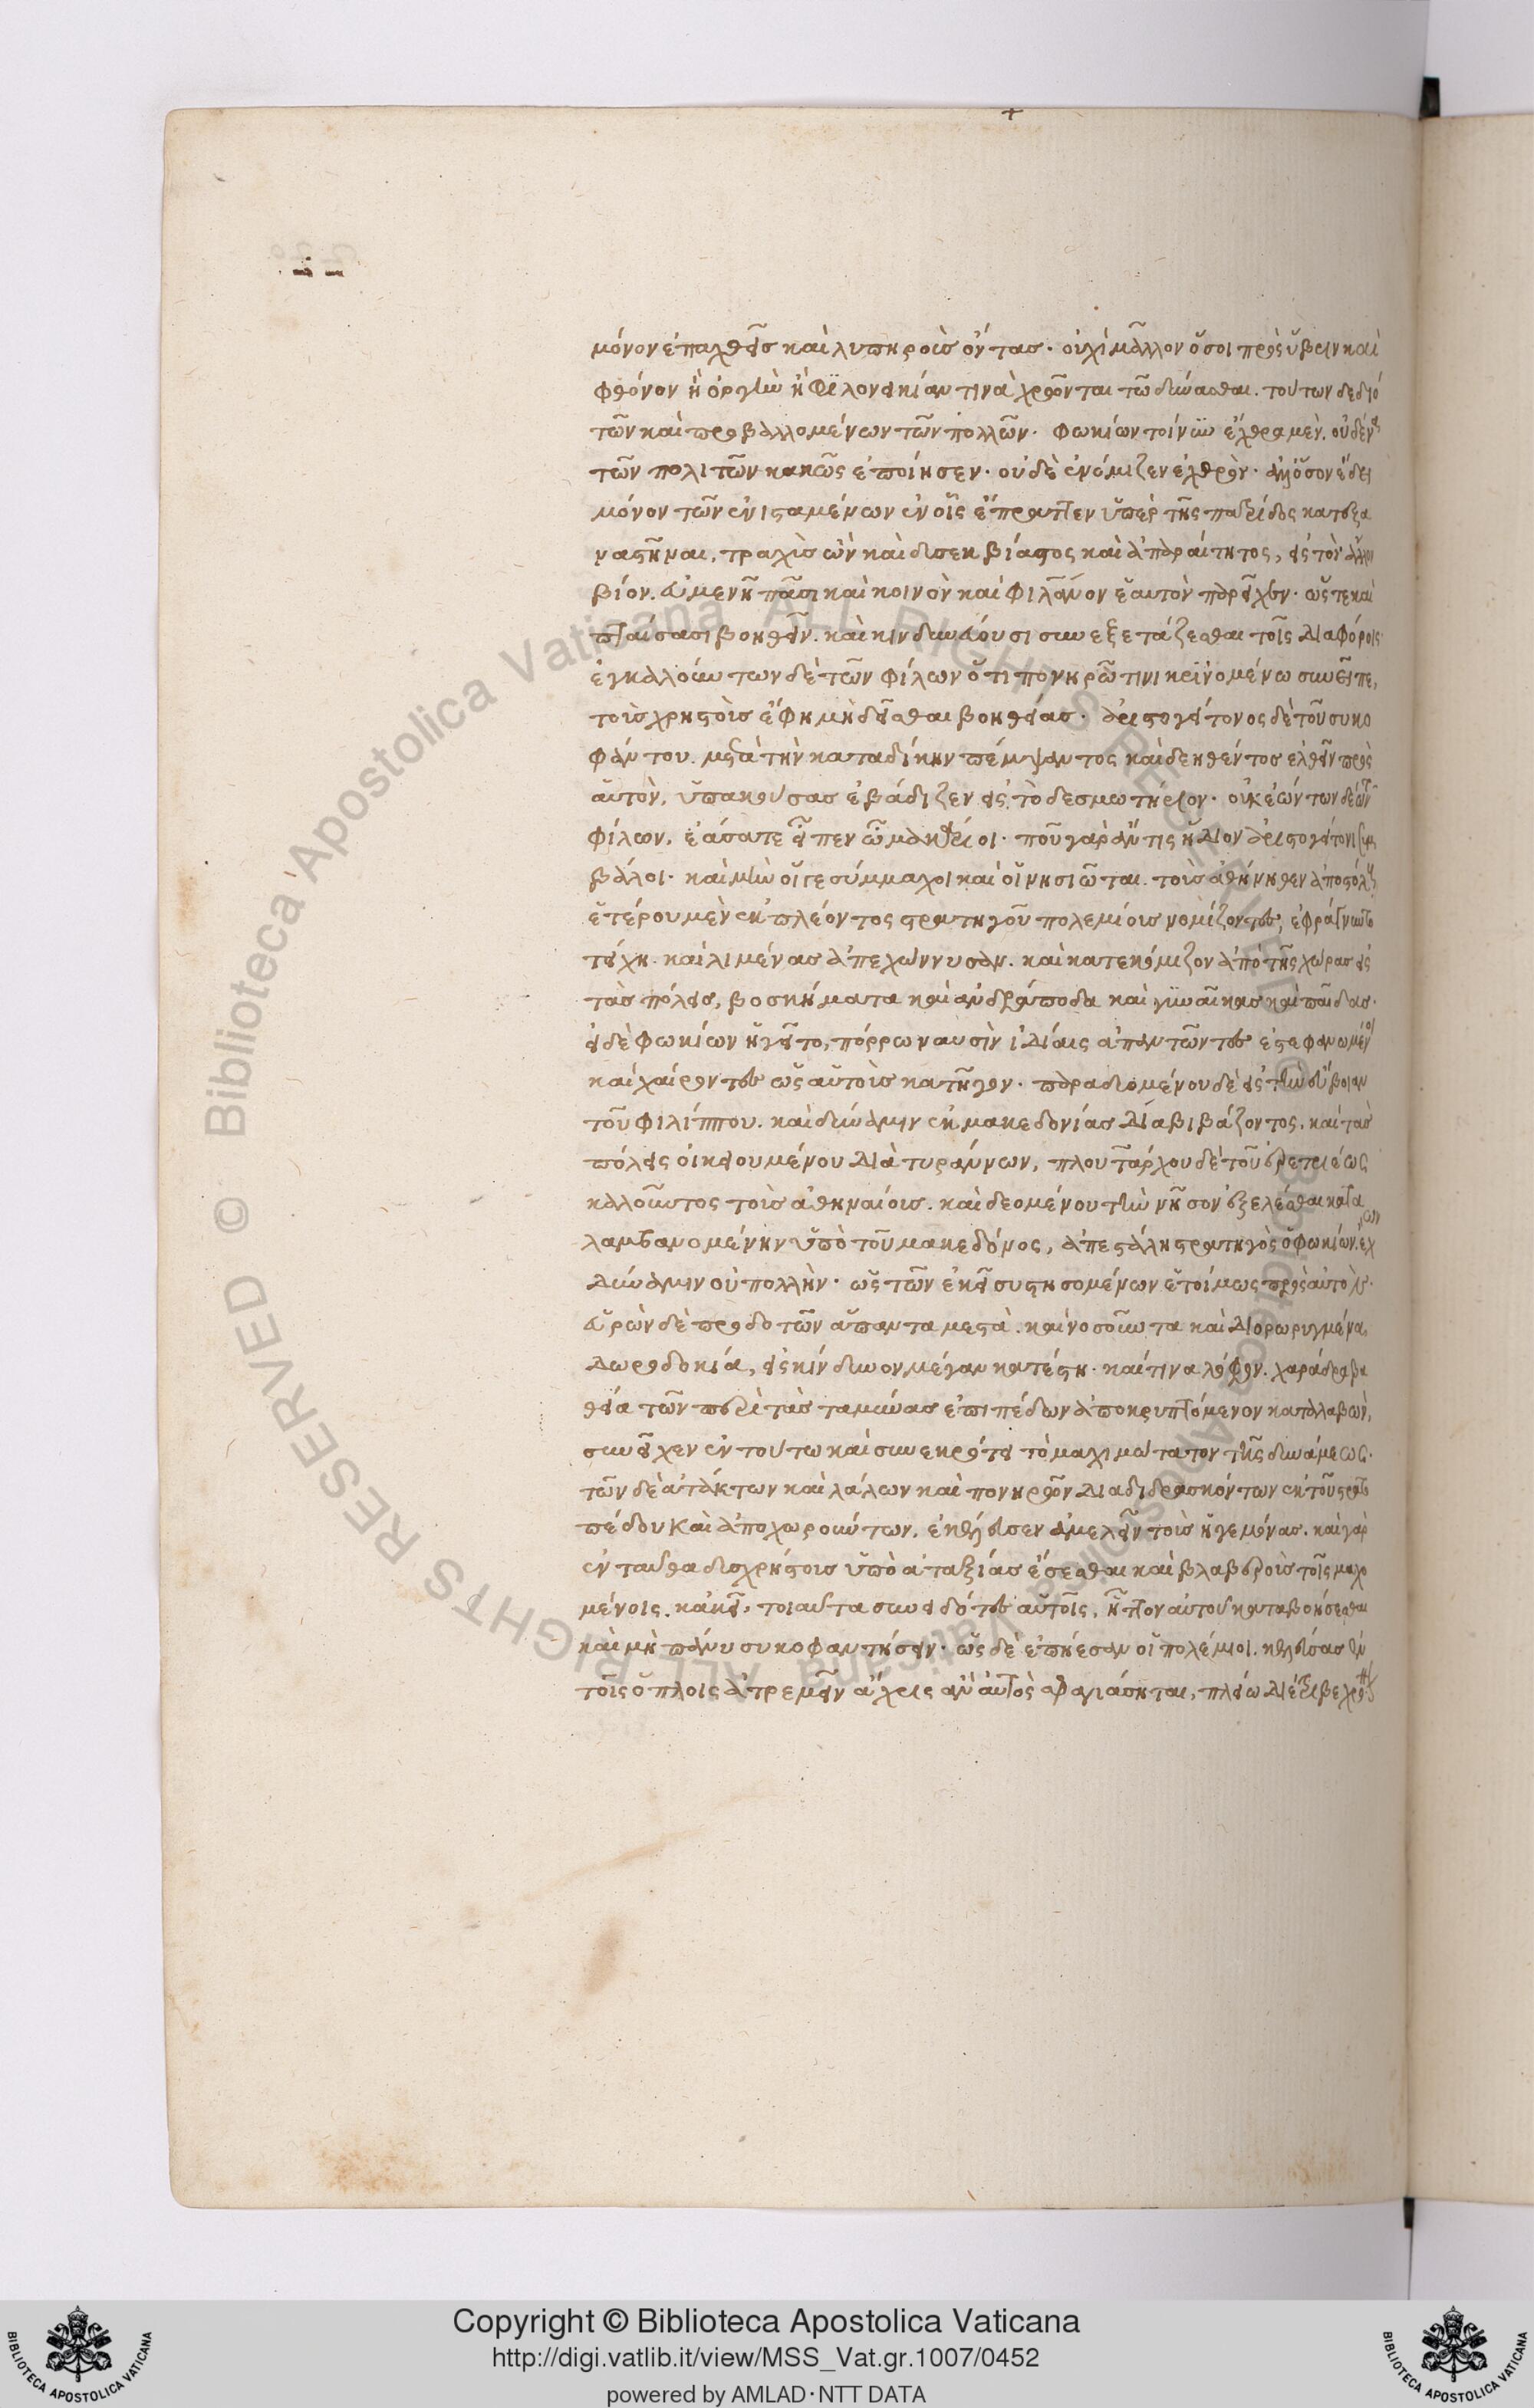 μόνον ἐπαχθεῖς καὶ λυπηροὺς ὄντας· οὐχὶ μᾶλλον ὅσοι πρὸς ὕβριν καὶ
φθόνον ἢ ὀργὴν ἢ φιλονεικίαν τινὰ χρῶνται τῶ δύνασθαι. τούτων δεδιό
των καὶ προβαλλομένων τῶν πολλῶν· φωκίων τοίνυν ἔχθρα μὲν. οὐδένα
τῶν πολιτῶν κακῶς ἐποίησεν· οὐδὲ ἐνόμιζεν ἐχθρὸν· ἀλλ' ὅσον ἔδει
μόνον τῶν ἐνισταμένων ἐν οἷς ἔπραττεν ὑπὲρ τῆς πατρίδος κατεξα
ναστῆναι, τραχὺς ὢν καὶ δυσεκβίαστος καὶ ἀπαραίτητος, εἰς τὸν ἄλλον
βίον. εὐμενῆ πᾶσι καὶ κοινὸν καὶ φιλάνον ἑαυτὸν παρεῖχεν· ὥστε καὶ
πταίσασι βοηθεῖν. καὶ κινδυνεύουσι συνεξετάζεσθαι τοῖς διαφόροις
ἐγκαλούντων δὲ τῶν φίλων ὅτι πονηρῶ τινι κρινομένω συνεῖπε,
τοὺς χρηστοὺς ἔφη μὴ δεῖσθαι βοηθείας· ἀριστογείτονος δὲ τοῦ συκο
φάντου. μετὰ τὴν καταδίκην πέμψαντος καὶ δεηθέντος ἐλθεῖν πρὸς
αὐτὸν, ὑπακούσας ἐβάδιζεν εἰς τὸ δεσμωτήριον· οὐκ ἐώντων δὲ τῶν
φίλων, ἐάσατε εἶπεν ὦ μακάριοι· ποῦ γὰρ ἄν τις ἥδιον ἀριστογείτονι συμ
βάλοι· καὶ μὴν οἵ τε σύμμαχοι καὶ οἱ νησιῶται. τοὺς ἀθήνηθεν ἀποστόλους
ἑτέρου μὲν ἐκπλέοντος στρατηγοῦ πολεμίους νομίζοντες, ἐφράγνυντο
τείχη. καὶ λιμένας ἀπεχώννυσαν. καὶ κατεκόμιζον ἀπὸ τῆς χώρας εἰς
τὰς πόλεις, βοσκήματα καὶ ἀνδράποδα καὶ γυναῖκας καὶ παῖδας·
εἰ δὲ φωκίων ἡγεῖτο, πόρρω ναυσὶν ἰδίαις ἀπαντῶντες ἐστεφανωμένοι
καὶ χαίροντες ὡς αὑτοὺς κατῆγον· παραδυομένου δὲ εἰς τὴν εὔβοιαν
τοῦ φιλίππου. καὶ δύναμιν ἐκ μακεδονίας διαβιβάζοντος, καὶ τὰς
πόλεις οἰκειουμένου διὰ τυράννων, πλουτάρχου δὲ τοῦ ἐρετριέως
καλοῦντος τοὺς ἀθηναίους. καὶ δεομένου τὴν νῆσον ἐξελέσθαι κατα
λαμβανομένην ὑπὸ τοῦ μακεδόνος, ἀπεστάλη στρατηγὸς ὁ φωκίων. ἔχων
δύναμιν οὐ πολλὴν· ὡς τῶν ἐκεῖ συστησομένων ἑτοίμως πρὸς αὐτόν·
εὑρὼν δὲ προδοτῶν ἅπαντα μεστὰ. καὶ νοσοῦντα καὶ διορωρυγμένα,
δωροδοκία, εἰς κίνδυνον μέγαν κατέστη· καί τινα λόφον. χαράδρα βα
θεία τῶν περὶ τὰς ταμύνας ἐπιπέδων ἀποκρυπτόμενον καταλαβών,
συνεῖχεν ἐν τούτω καὶ συνεκρότει τὸ μαχιμώτατον τῆς δυνάμεως·
τῶν δὲ ἀτάκτων καὶ λάλων καὶ πονηρῶν διαδιδρασκόντων ἐκ τοῦ στρατο
πέδου καὶ ἀποχωρούντων, ἐκέλευσεν ἀμελεῖν τοὺς ἡγεμόνας. καὶ γὰρ
ἐνταῦθα δυσχρήστους ὑπὸ ἀταξίας ἔσεσθαι καὶ βλαβεροὺς τοῖς μαχο
μένοις. κἀκεῖ, τοιαῦτα συνειδότες αὑτοῖς, ἧττον αὐτοῦ καταβοήσεσθαι
καὶ μὴ πάνυ συκοφαντήσειν· ὡς δὲ ἐπήεσαν οἱ πολέμιοι. κελεύσας ἐν
τοῖς ὅπλοις ἀτρεμεῖν ἄχρις ἂν αὐτὸς σφαγιάσηται, πλείω διέτριβε χρόνον